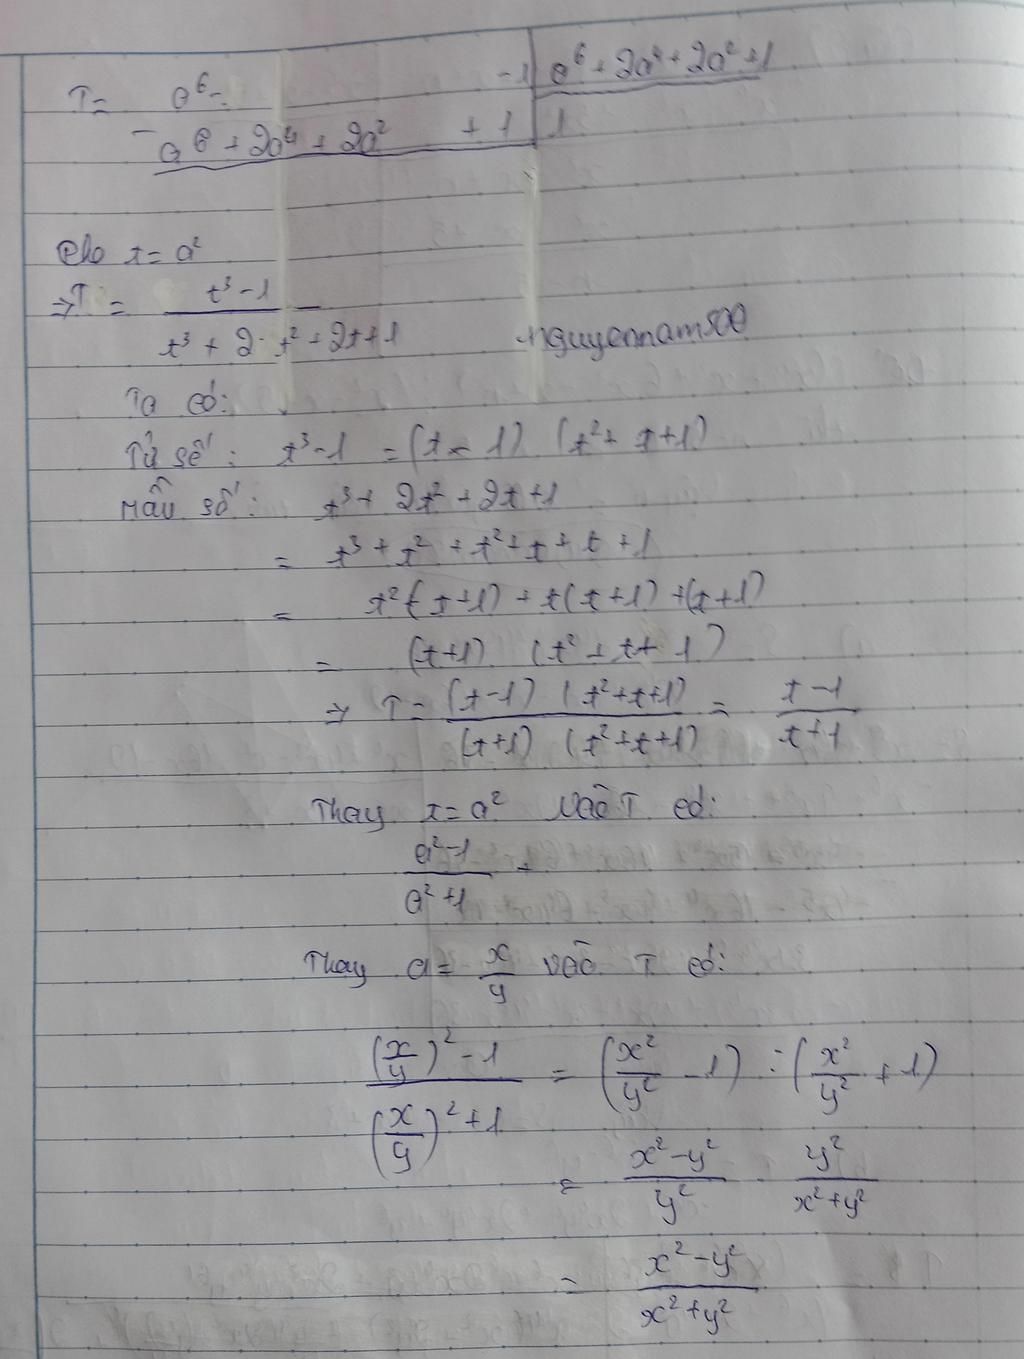 T= a⁶- -1 | a⁶ + 2a⁴ + 2a² + 1
- a⁶ + 2a⁴ + 2a² + 1 | 1
Cho t = a²
⇒ T = (t³ - 1) / (t³ + 2·t² + 2t + 1)
nguyennam500
Ta có:
Tử số: t³ - 1 = (t - 1) (t² + t + 1)
Mẫu số: t³ + 2t² + 2t + 1
= t³ + t² + t² + t + t + 1
= t² (t+1) + t(t+1) + (t+1)
= (t+1) (t² + t + 1)
⇒ T = (t-1) (t²+t+1) / (t+1) (t²+t+1) = (t-1) / (t+1)
Thay t = a² vào T có:
(a²-1) / (a²+1)
Thay a = x/y vào T có:
((x/y)² - 1) / ((x/y)² + 1) = (x²/y² - 1) : (x²/y² + 1)
= (x² - y²)/y² · y²/(x² + y²)
= (x² - y²) / (x² + y²)